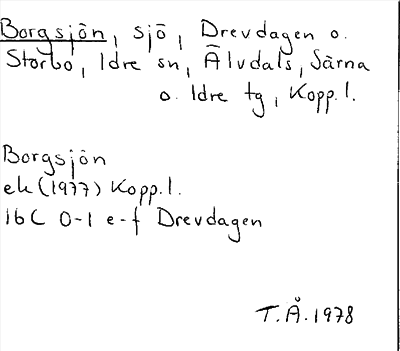 Borgsjön, sjö, Drevdagen o.
Storbo, Idre sn, Älvdals, Särna
o. Idre tg, Kopp.l.
Borgsjön
ek (1977) Kopp.l.
16C 0-1 e-f Drevdagen
T.Å. 1978